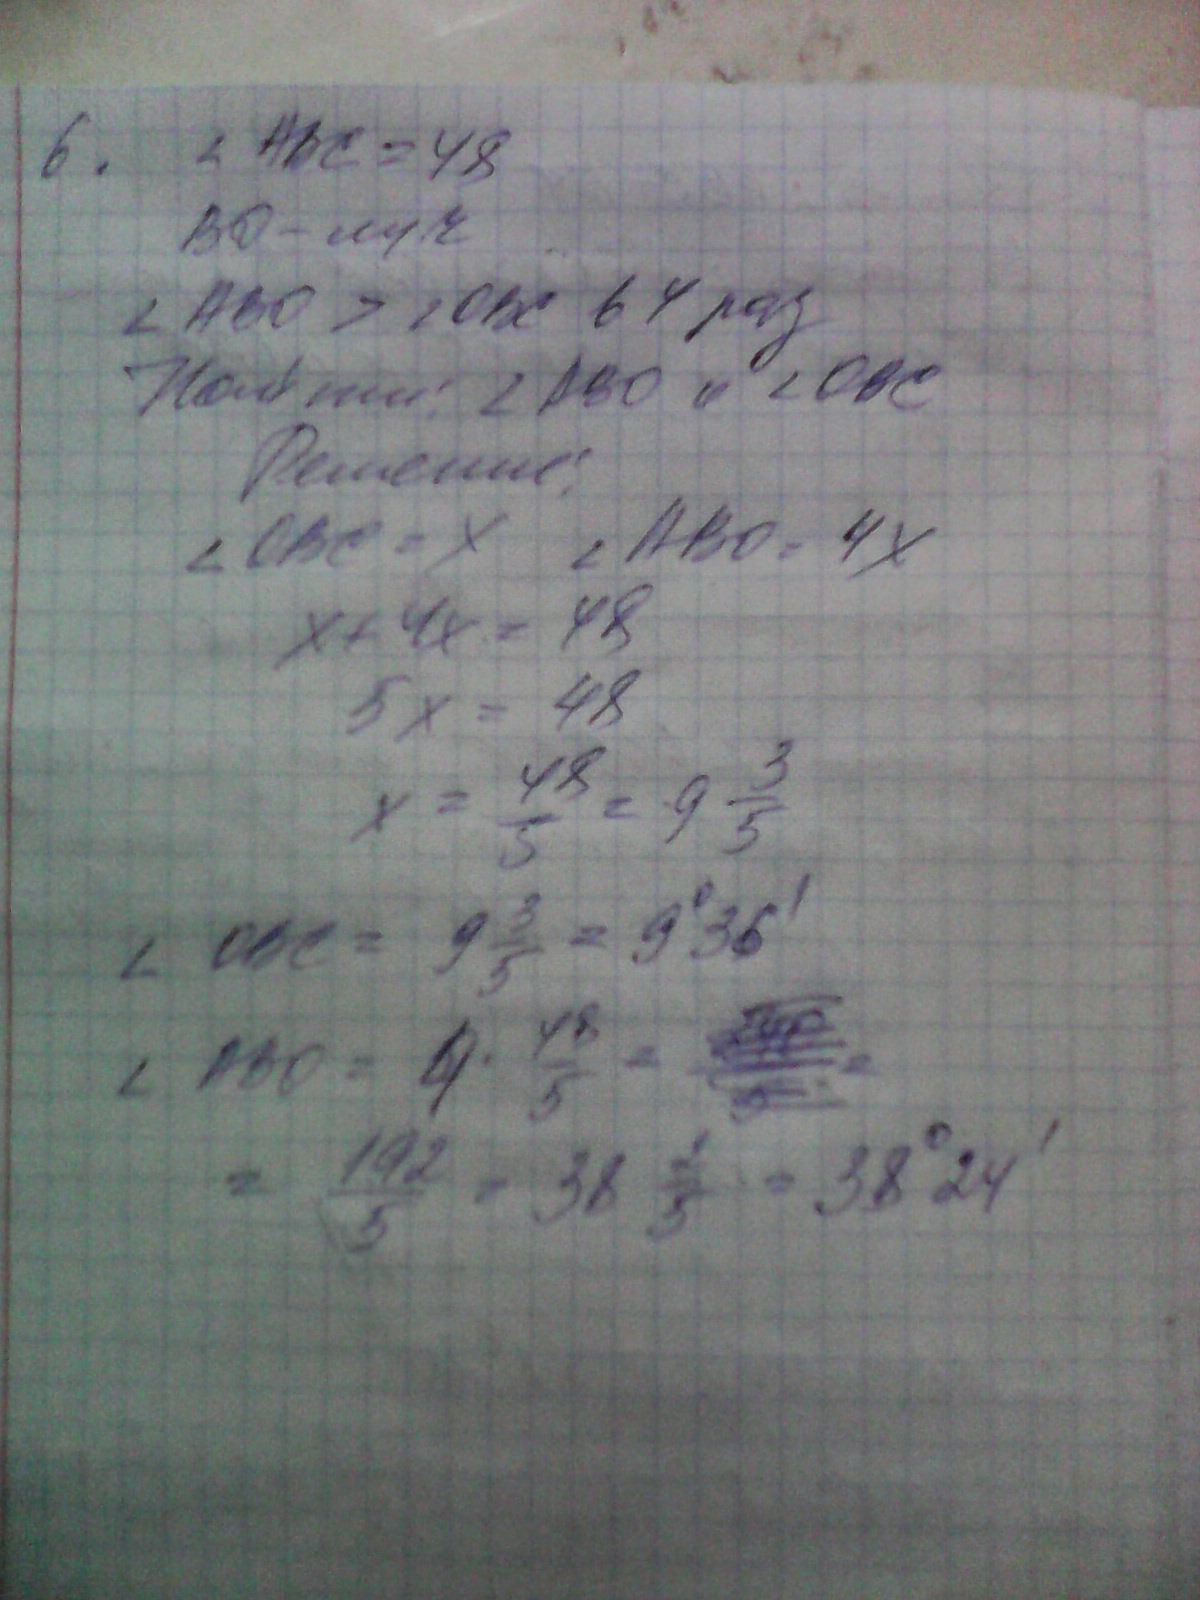 6. ∠ ABC = 48
BO - луч
∠ ABO > ∠ OBC в 4 раз
Найти: ∠ ABO и ∠ OBC
Решение:
∠ OBC = x ∠ ABO = 4x
x + 4x = 48
5x = 48
x = 48/5 = 9 3/5
∠ OBC = 9 3/5 = 9°36'
∠ ABO = 4 · 48/5 = =
= 192/5 = 38 1/5 = 38°24'